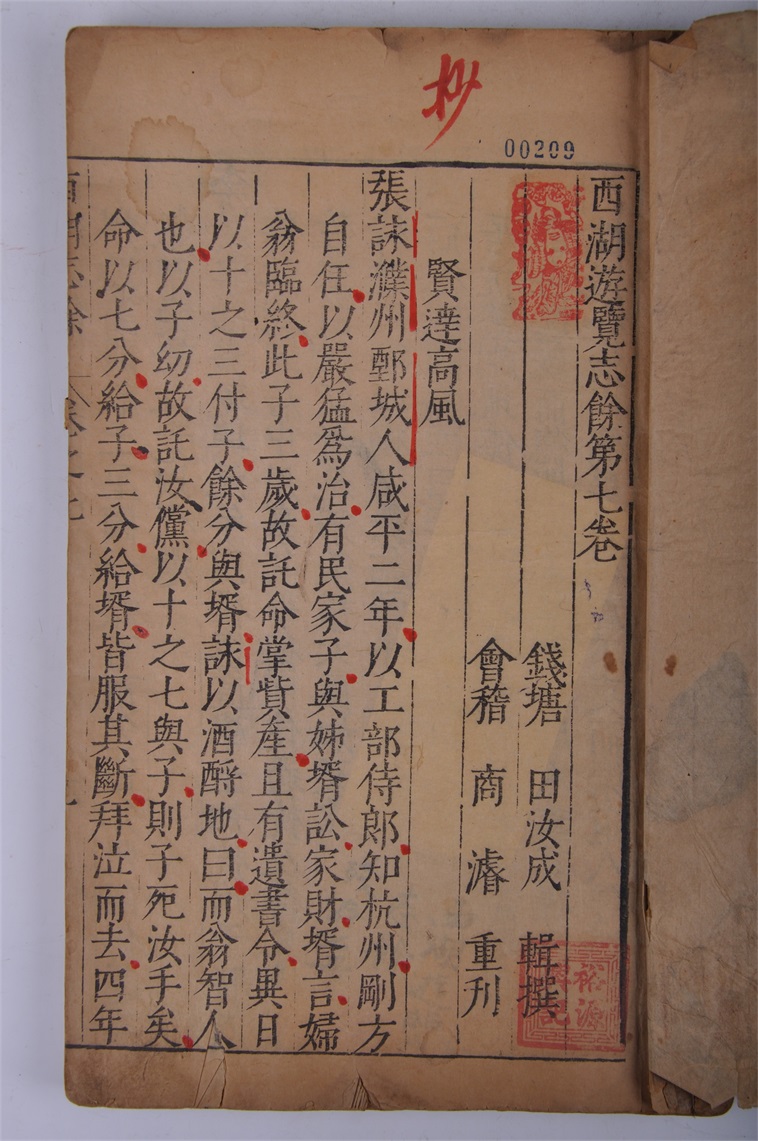 抄
00209
西湖遊覽志餘第七卷
錢塘 田汝成 輯撰
會稽 商濬 重刊
賢達高風
張詠濮州鄄城人咸平二年以工部侍郎知杭州剛方
自任以嚴猛爲治有民家子與姊壻訟家財壻言婦
翁臨終此子三歲故託命掌貲產且有遺書令異日
以十之三付子餘分與壻詠以酒酹地曰而翁智人
也以子幼故託汝儻以十之七與子則子死汝手矣
命以七分給子三分給壻皆服其斷拜泣而去四年